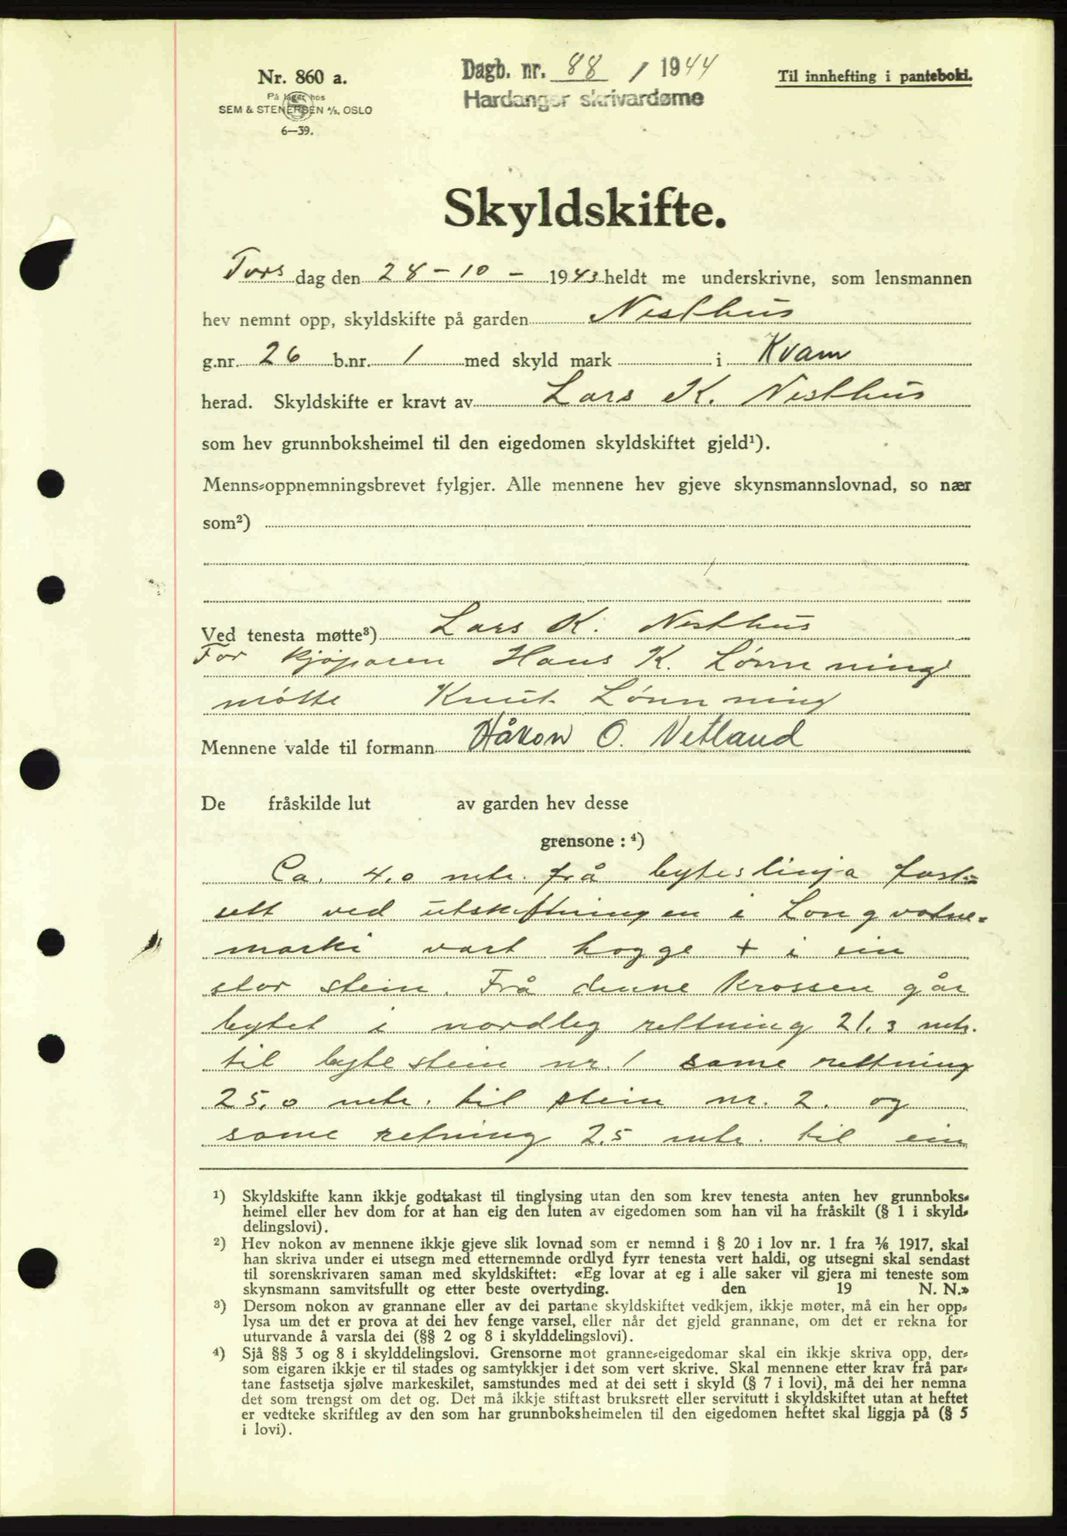 Nr. 860 a.
På lager hos
SEM & STENERSEN A/S, OSLO
6—39.
Dagb. nr. 88 / 1944
Hardanger skrivardøme
Til innhefting i pantebok.
Skyldskifte.
Tors dag den 28 - 10 - 1943 heldt me underskrivne, som lensmannen
hev nemnt opp, skyldskifte på garden Nesthus
g.nr. 26 b.nr. 1 med skyld mark i Kvam
herad. Skyldskifte er kravt av Lars K. Nesthus
som hev grunnboksheimel til den eigedomen skyldskiftet gjeld¹).
Menns-oppnemningsbrevet fylgjer. Alle mennene hev gjeve skynsmannslovnad, so nær
som²)
Ved tenesta møtte³) Lars K. Nesthus
For kjøparen Hans K. Lønning
møtte Knut Lønning
Mennene valde til formann Håkon O. Netland
De fråskilde lut av garden hev desse
grensone : ⁴)
Ca. 4,0 mtr. frå byteslinja fast-
sett ved utskiftningen i Longvotne-
marki vart hogge + i ein
stor stein. Frå denne krossen går
bytet i nordleg rettning 21.3 mtr.
til bytestein nr. 1 same rettning
25,0 mtr. til stein nr. 2. og
same retning 2.5 mtr. til ein
¹) Skyldskifte kann ikkje godtakast til tinglysing utan den som krev tenesta anten hev grunnboks-
heimel eller hev dom for at han eig den luten av eigedomen som han vil ha fråskilt (§ 1 i skyld-
delingslovi).
²) Hev nokon av mennene ikkje gjeve slik lovnad som er nemnd i § 20 i lov nr. 1 fra ⅙ 1917, skal
han skriva under ei utsegn med etternemnde ordlyd fyrr tenesta vert haldi, og utsegni skal sendast
til sorenskrivaren saman med skyldskiftet: «Eg lovar at eg i alle saker vil gjera mi teneste som
skynsmann samvitsfullt og etter beste overtyding. den 19 N. N.»
³) Dersom nokon av grannane eller av dei partane skyldskiftet vedkjem, ikkje møter, må ein her opp-
lysa um det er prova at dei hev fenge varsel, eller når det gjeld grannane, om det er rekna for
uturvande å varsla dei (§§ 2 og 8 i skylddelingslovi).
⁴) Sjå §§ 3 og 8 i skylddelingslovi. Grensorne mot granne-eigedomar skal ein ikkje skriva opp, der-
som eigaren ikkje er til stades og samtykkjer i det som vert skrive. Skal mennene etter krav frå par-
tane fastsetja sjølve markeskilet, samstundes med at dei sett i skyld (§ 7 i lovi), må dei her nemna
det som trengst om det og. Det må ikkje stiftast bruksrett eller servitutt i skyldskiftet utan at heftet
er vedteke skriftleg av den som har grunnboksheimelen til den eigedomen heftet skal liggja på (§ 5
i lovi).